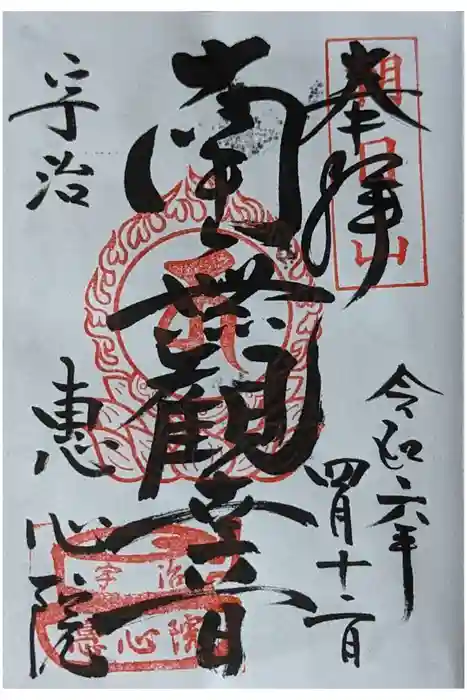 奉拝
朝日山
令和六年
四月十二日
南無観音
宇治
恵心院
宇治
恵心院